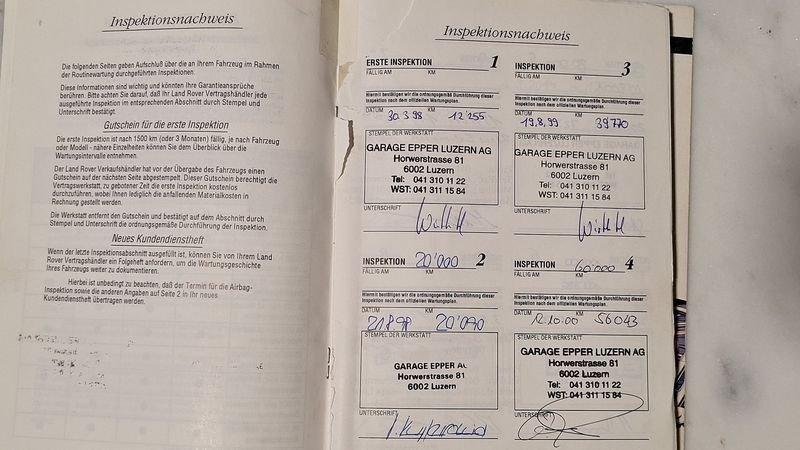 Inspektionsnachweis
Die folgenden Seiten geben Aufschluß über die an Ihrem Fahrzeug im Rahmen
der Routinewartung durchgeführten Inspektionen.
Diese Informationen sind wichtig und könnten Ihre Garantieansprüche
berühren. Bitte achten Sie darauf, daß Ihr Land Rover Vertragshändler jede
ausgeführte Inspektion im entsprechenden Abschnitt durch Stempel und
Unterschrift bestätigt.
Gutschein für die erste Inspektion
Die erste Inspektion ist nach 1500 km (oder 3 Monaten) fällig, je nach Fahrzeug
oder Modell - nähere Einzelheiten können Sie dem Überblick über die
Wartungsintervalle entnehmen.
Der Land Rover Verkaufshändler hat vor der Übergabe des Fahrzeugs einen
Gutschein auf der nächsten Seite abgestempelt. Dieser Gutschein berechtigt die
Vertragswerkstatt, zu gebotener Zeit die erste Inspektion kostenlos
durchzuführen, wobei Ihnen lediglich die anfallenden Materialkosten in
Rechnung gestellt werden.
Die Werkstatt entfernt den Gutschein und bestätigt auf dem Abschnitt durch
Stempel und Unterschrift die ordnungsgemäße Durchführung der Inspektion.
Neues Kundendienstheft
Wenn der letzte Inspektionsabschnitt ausgefüllt ist, können Sie von Ihrem Land
Rover Vertragshändler ein Folgeheft anfordern, um die Wartungsgeschichte
Ihres Fahrzeugs weiter zu dokumentieren.
Hierbei ist unbedingt zu beachten, daß der Termin für die Airbag-
Inspektion sowie die anderen Angaben auf Seite 2 in Ihr neues
Kundendienstheft übertragen werden.
Inspektionsnachweis
ERSTE INSPEKTION 1
FÄLLIG AM KM
Hiermit bestätigen wir die ordnungsgemäße Durchführung dieser
Inspektion nach dem offiziellen Wartungsplan.
DATUM 30.3.98 KM 12'255
STEMPEL DER WERKSTATT
GARAGE EPPER LUZERN AG
Horwerstrasse 81
6002 Luzern
Tel: 041 310 11 22
WST: 041 311 15 84
UNTERSCHRIFT
INSPEKTION 20'000 2
FÄLLIG AM KM
Hiermit bestätigen wir die ordnungsgemäße Durchführung dieser
Inspektion nach dem offiziellen Wartungsplan.
DATUM 21.8.98 KM 20'090
STEMPEL DER WERKSTATT
GARAGE EPPER
Horwerstrasse 81
6002 Luzern
UNTERSCHRIFT
INSPEKTION 3
FÄLLIG AM KM
Hiermit bestätigen wir die ordnungsgemäße Durchführung dieser
Inspektion nach dem offiziellen Wartungsplan.
DATUM 19.8.99 KM 39770
STEMPEL DER WERKSTATT
GARAGE EPPER LUZERN AG
Horwerstrasse 81
6002 Luzern
Tel: 041 310 11 22
WST: 041 311 15 84
UNTERSCHRIFT
INSPEKTION 60'000 4
FÄLLIG AM KM
Hiermit bestätigen wir die ordnungsgemäße Durchführung dieser
Inspektion nach dem offiziellen Wartungsplan.
DATUM 12.10.00 KM 56043
STEMPEL DER WERKSTATT
GARAGE EPPER LUZERN AG
Horwerstrasse 81
6002 Luzern
Tel: 041 310 11 22
WST: 041 311 15 84
UNTERSCHRIFT